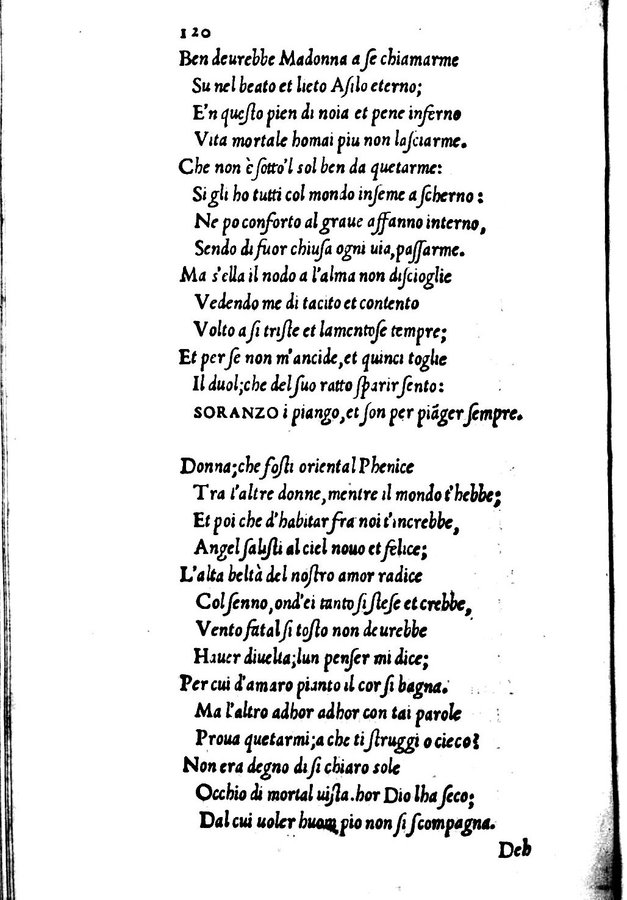 120
Ben deurebbe Madonna a se chiamarme
Su nel beato et lieto Asilo eterno;
E'n questo pien di noia et pene inferno
Vita mortale homai piu non lasciarme.
Che non è sotto'l sol ben da quetarme:
Si gli ho tutti col mondo inseme a scherno:
Ne po conforto al graue affanno interno,
Sendo di fuor chiusa ogni uia, passarme.
Ma s'ella il nodo a l'alma non discioglie
Vedendo me di tacito et contento
Volto a si triste et lamentose tempre;
Et per se non m'ancide, et quinci toglie
Il duol; che del suo ratto sparir sento:
SORANZO i piango, et son per piãger sempre.
Donna; che fosti oriental Phenice
Tra l'altre donne, mentre il mondo t'hebbe;
Et poi che d'habitar fra noi t'increbbe,
Angel salisti al ciel nouo et felice;
L'alta beltà del nostro amor radice
Col senno, ond'ei tanto si stese et crebbe,
Vento fatal si tosto non deurebbe
Hauer diuelta; lun penser mi dice;
Per cui d'amaro pianto il cor si bagna.
Ma l'altro adhor adhor con tai parole
Proua quetarmi; a che ti struggi o cieco?
Non era degno di si chiaro sole
Occhio di mortal uista. hor Dio lha seco;
Dal cui uoler huom pio non si scompagna.
Deh